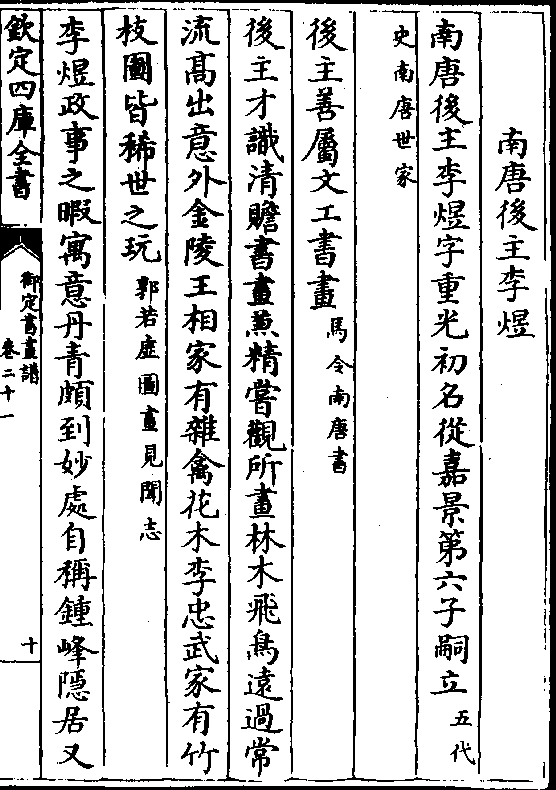 南唐後主李煜
南唐後主李煜字重光初名從嘉景第六子嗣立五代
史南唐世家
後主善屬文工書畫馬令南唐書
後主才識清贍書畫兼精嘗觀所畫林木飛鳥遠過常
流髙出意外金陵王相家有雜禽花木李忠武家有竹
枝圖皆稀世之玩郭若虛圖畫見聞志
李煜政事之暇寓意丹青頗到妙處自稱鍾峰隱居又
欽定四庫全書
御定書畫譜
卷二十一
十